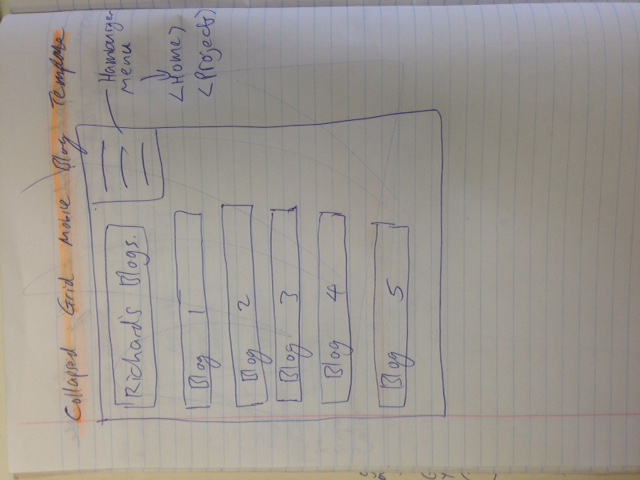 Collapsed Grid Mobile Blog Template
Richard's Blogs.
Hamburger
Menu
<Home>
<Projects>
Blog 1
Blog 2
Blog 3
Blog 4
Blog 5